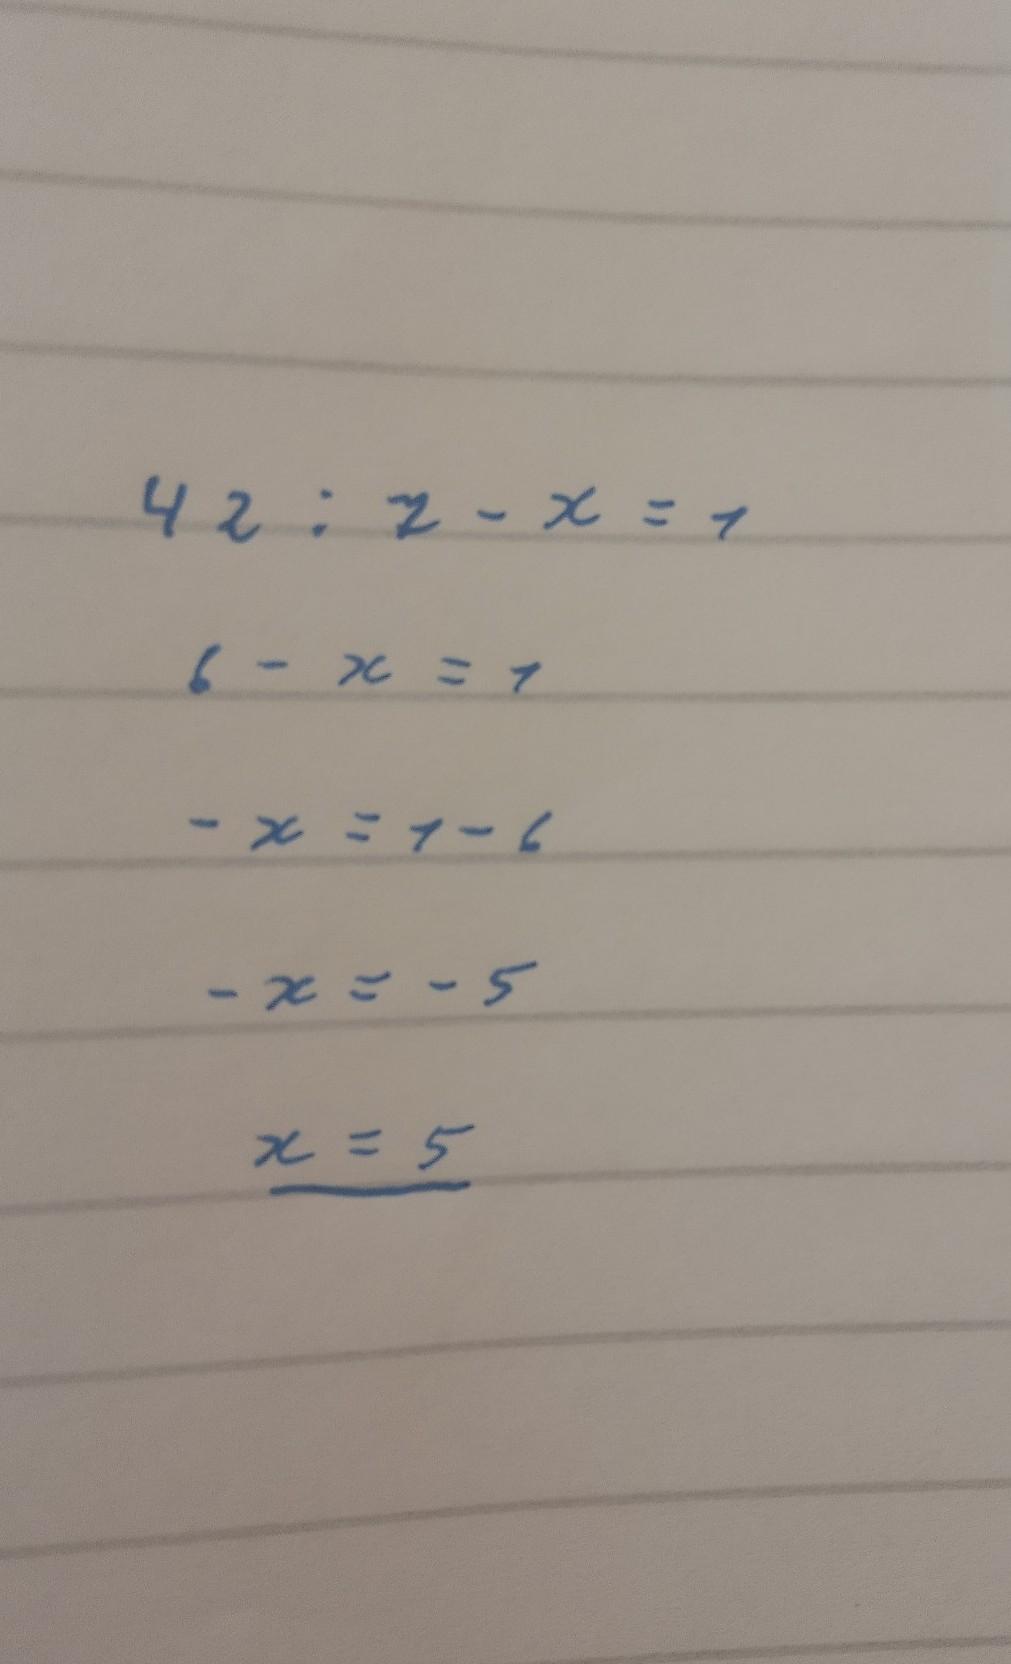 42 : 7 - x = 1
6 - x = 1
- x = 1 - 6
- x = - 5
x = 5